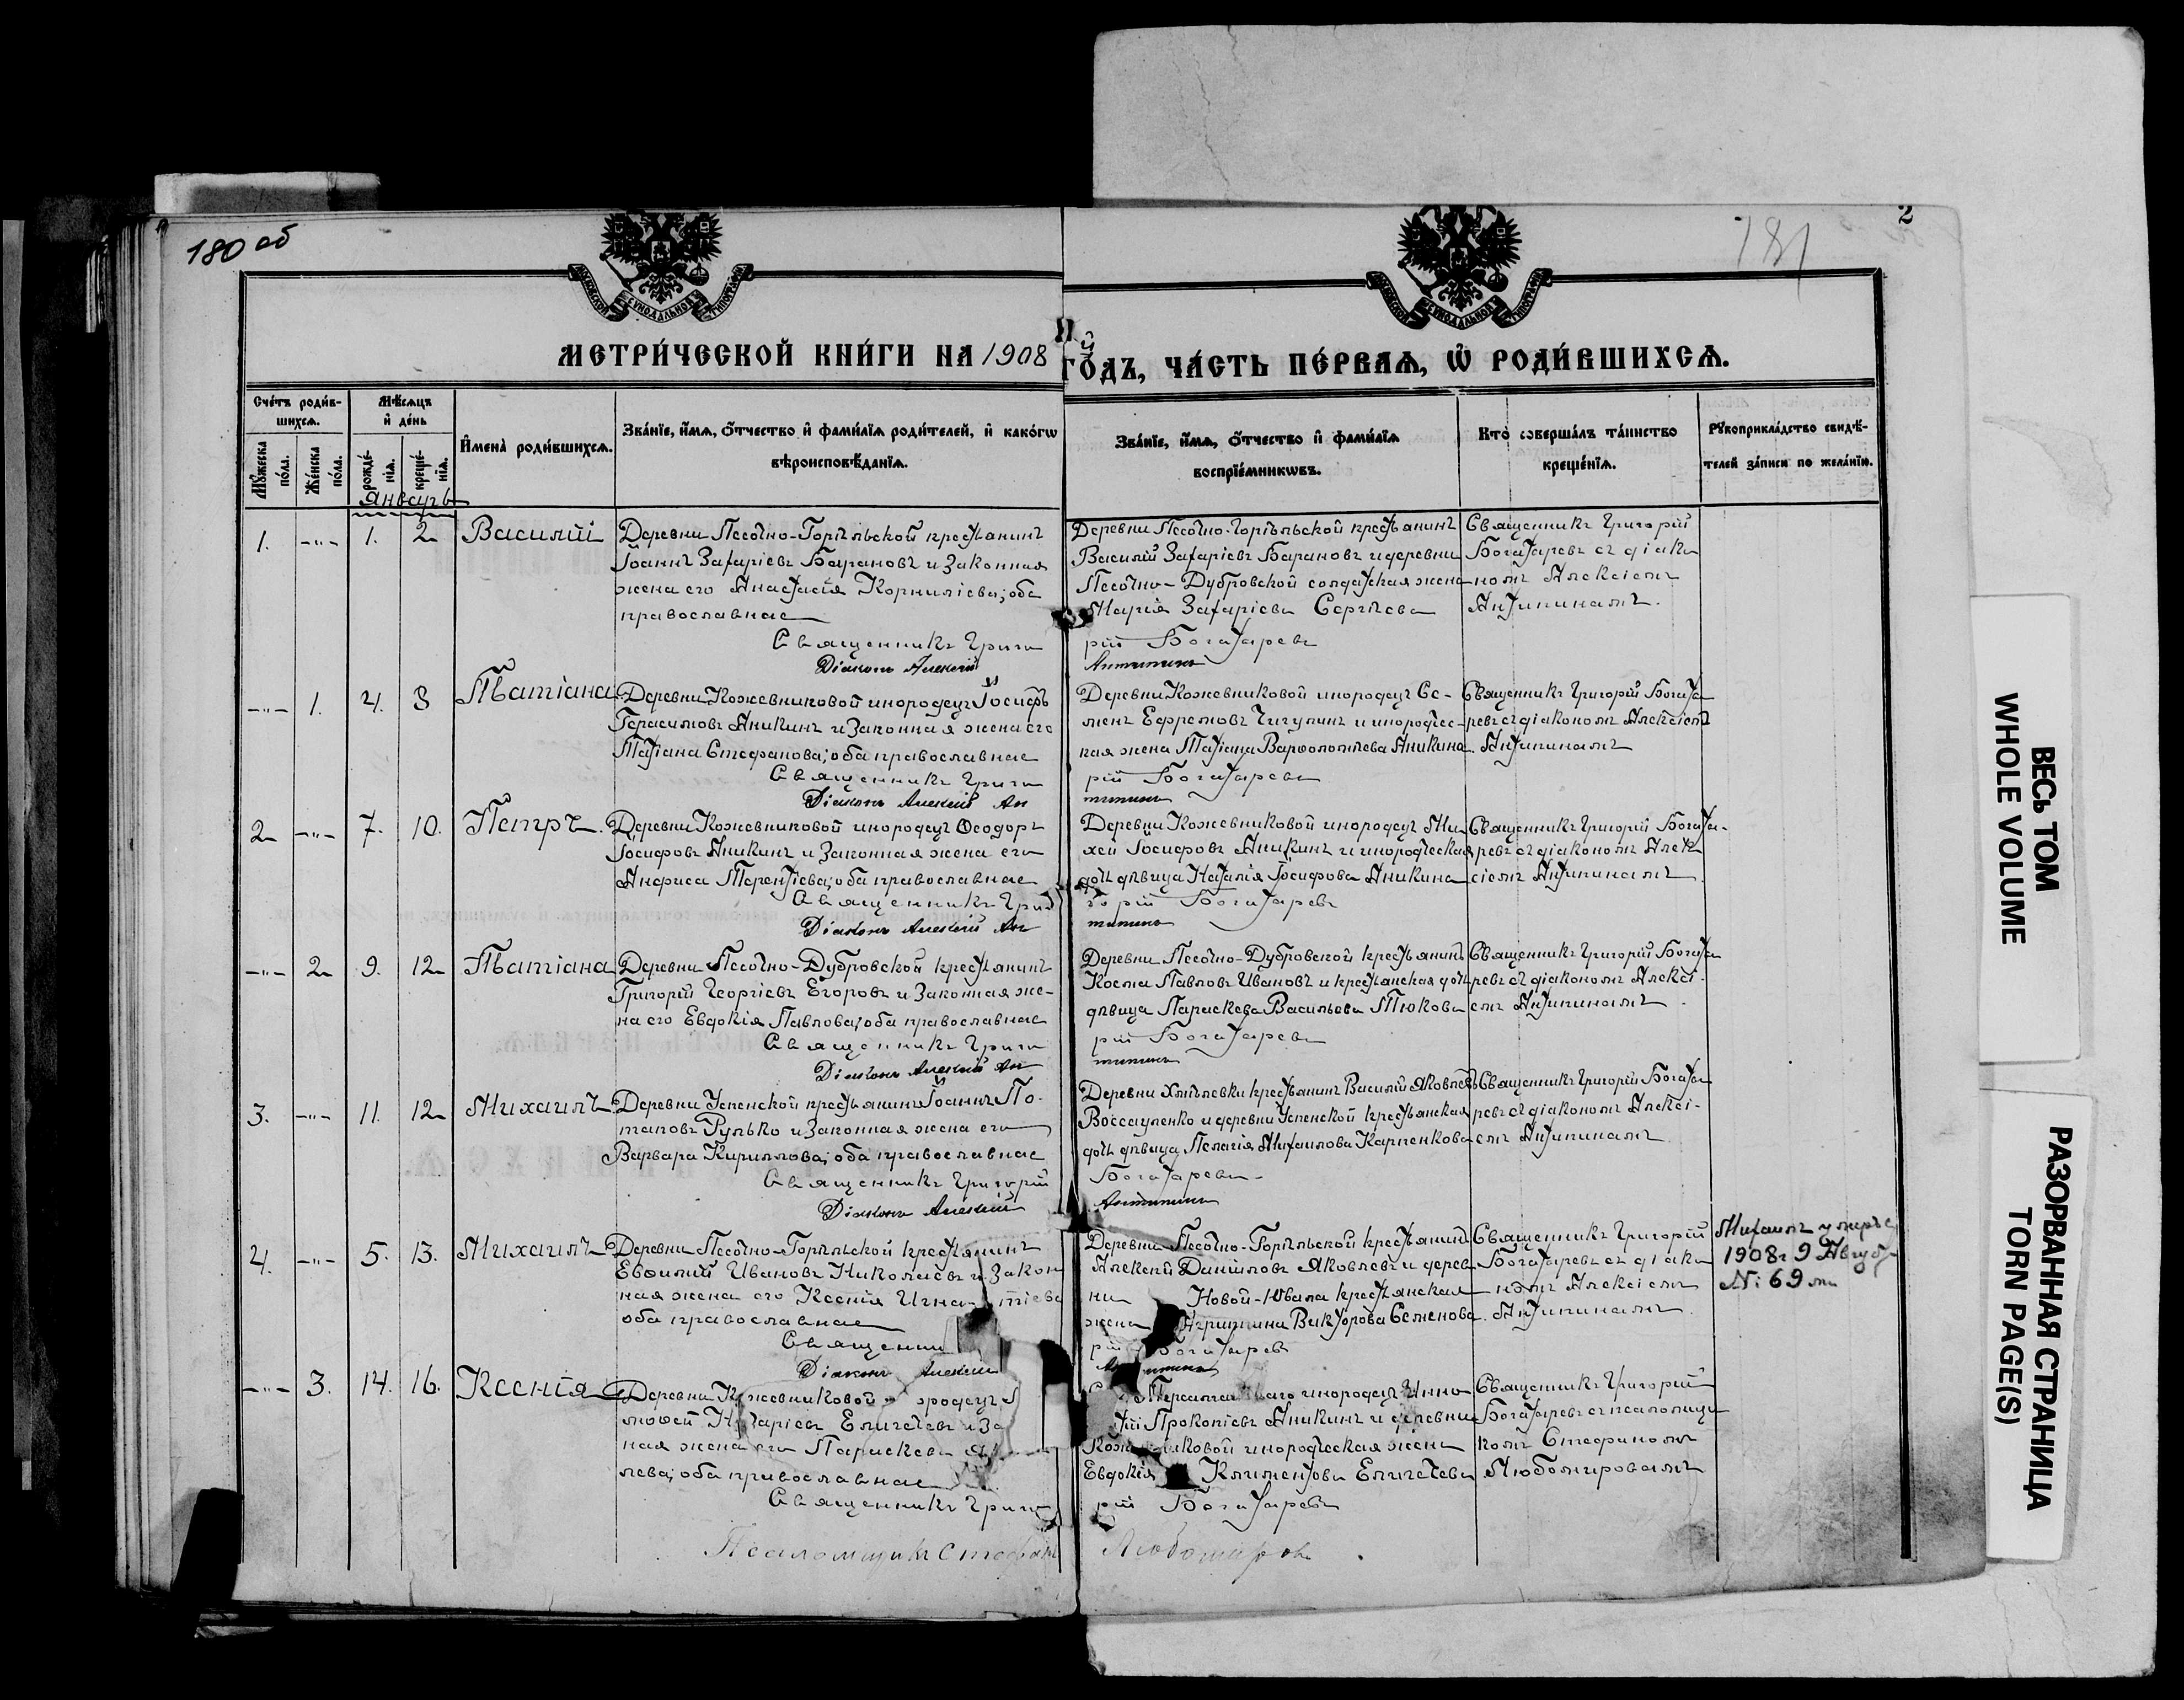 180 об
181
2
МЕТРИ́ЧЕСКОЙ КНИ́ГИ НА 1908й ГО́ДЪ, ЧА́СТЬ ПЕ́РВАѦ, Ѡ҆ РОДИ́ВШИХСѦ.
Сче́тъ роди́в-
шихсѧ.
Мꙋ́жеска по́ла.
Же́нска по́ла.
Мѣ́сѧцъ
и҆ де́нь
рожде́-
нїѧ.
креще́-
нїѧ.
И҆мена̀ роди́вшихсѧ.
Зва́нїе, и҆́мѧ, ѻ҆́тчество и҆ фами́лїѧ роди́телей, и҆ како́гѡ
вѣроисповѣ́данїѧ.
Зва́нїе, и҆́мѧ, ѻ҆́тчество и҆ фами́лїѧ
воспрїе́мникѡвъ.
Кто̀ соверша́лъ та́инство
креще́нїѧ.
Рꙋкоприкла́дство свидѣ́-
телей за́писи по жела́нїю.
Январь
1. -"- 1. 2 Василій
Деревни Песочно-Горѣльской крестьянинъ
Іоаннъ Захаріевъ Барановъ и законная
жена его Анастасія Корниліева; оба
православные
Священникъ Григо
Діаконъ Алексій
Деревни Песочно-Горѣльской крестьянинъ
Василій Захаріевъ Барановъ и деревни
Песочно-Дубровской солдатская жена
Марія Захаріева Сергѣева
рій Богатыревъ
Антипинъ
Священникъ Григорій
Богатыревъ съ діако
номъ Алексіемъ
Антипинымъ.
-"- 1. 4. 8 Татіана
Деревни Кожевниковой инородецъ Іосифъ
Герасимовъ Аникинъ и законная жена его
Татіана Стефанова; оба православные
Священникъ Григо
Діаконъ Алексій Ан
Деревни Кожевниковой инородецъ Се-
менъ Ефремовъ Чигулинъ и инородчес-
кая жена Татіана Варѳоломѣева Аникина.
рій Богатыревъ
типинъ
Священникъ Григорій Богаты
ревъ съ діакономъ Алексіемъ
Антипинымъ
2 -"- 7. 10. Петръ.
Деревни Кожевниковой инородецъ Ѳеодоръ
Іосифовъ Аникинъ и законная жена его
Анфиса Терентіева; оба православные
Священникъ Григ
Діаконъ Алексій Ан
Деревни Кожевниковой инородецъ Ми
хей Іосифовъ Аникинъ и инородческая
дочь дѣвица Наталія Іосифова Аникина
орій Богатыревъ
типинъ
Священникъ Григорій Богаты-
ревъ съ діакономъ Алек
сіемъ Антипинымъ.
-"- 2 9. 12 Татіана
Деревни Песочно-Дубровской крестьянинъ
Григорій Георгіевъ Егоровъ и законная же-
на его Евдокія Павлова; оба православные
Священникъ Григо
Діаконъ Алексій Ан
Деревни Песочно-Дубровской крестьянинъ
Косма Павловъ Ивановъ и крестьянская дочь
дѣвица Параскева Васильева Тюкова
рій Богатыревъ
типинъ
Священникъ Григорій Богаты
ревъ съ діакономъ Алексі-
емъ Антипинымъ.
3. -"- 11. 12 Михаилъ.
Деревни Успенской крестьянинъ Іоаннъ По-
таповъ Рулько и законная жена его
Варвара Кириллова; оба православные
Священникъ Григорій
Діаконъ Алексій
Деревни Хмѣлевки крестьянинъ Василій Яковлевъ
и деревни Успенской крестьянская
дочь дѣвица Пелагія Михаилова Карпенкова
Богатыревъ
Антипинъ
Священникъ Григорій Богаты
ревъ съ діакономъ Алексі-
емъ Антипинымъ
4. -"- 5. 13. Михаилъ.
Деревни Песочно-Горѣльской крестьянинъ
Евѳимій Ивановъ Николаевъ и закон
ная жена его Ксенія Игна тіева
оба православные
Священни
Діаконъ Алексій
Деревни Песочно-Горѣльской крестьянинъ
Алексій Даниловъ Яковлевъ и дерев
ни Новой-Ювала крестьянская
жена Агриппина Викторова Семенова.
рій Богатыревъ
Антипинъ
Священникъ Григорій
Богатыревъ съ діако
номъ Алексіемъ
Антипинымъ.
Михаилъ умеръ
1908 г 9 Август
№ 69
-"- 3. 14. 16. Ксенія
Деревни Кожевниковой ородецъ
моѳей Еличевъ и за
ная жена его Параскева
лева; оба православные
Священникъ Григо
Псаломщикъ Стефанъ
инородецъ Инно
тій Прокопіевъ Аникинъ и деревни
Кож иковой инородческая жена
Евдокія Климентова Еличева
рій Богатыревъ
Любомировъ.
Священникъ Григорій
Богатыревъ съ псаломщи
комъ Стефаномъ
Любомировымъ
ВЕСЬ ТОМ
WHOLE VOLUME
РАЗОРВАННАЯ СТРАНИЦА
TORN PAGE(S)